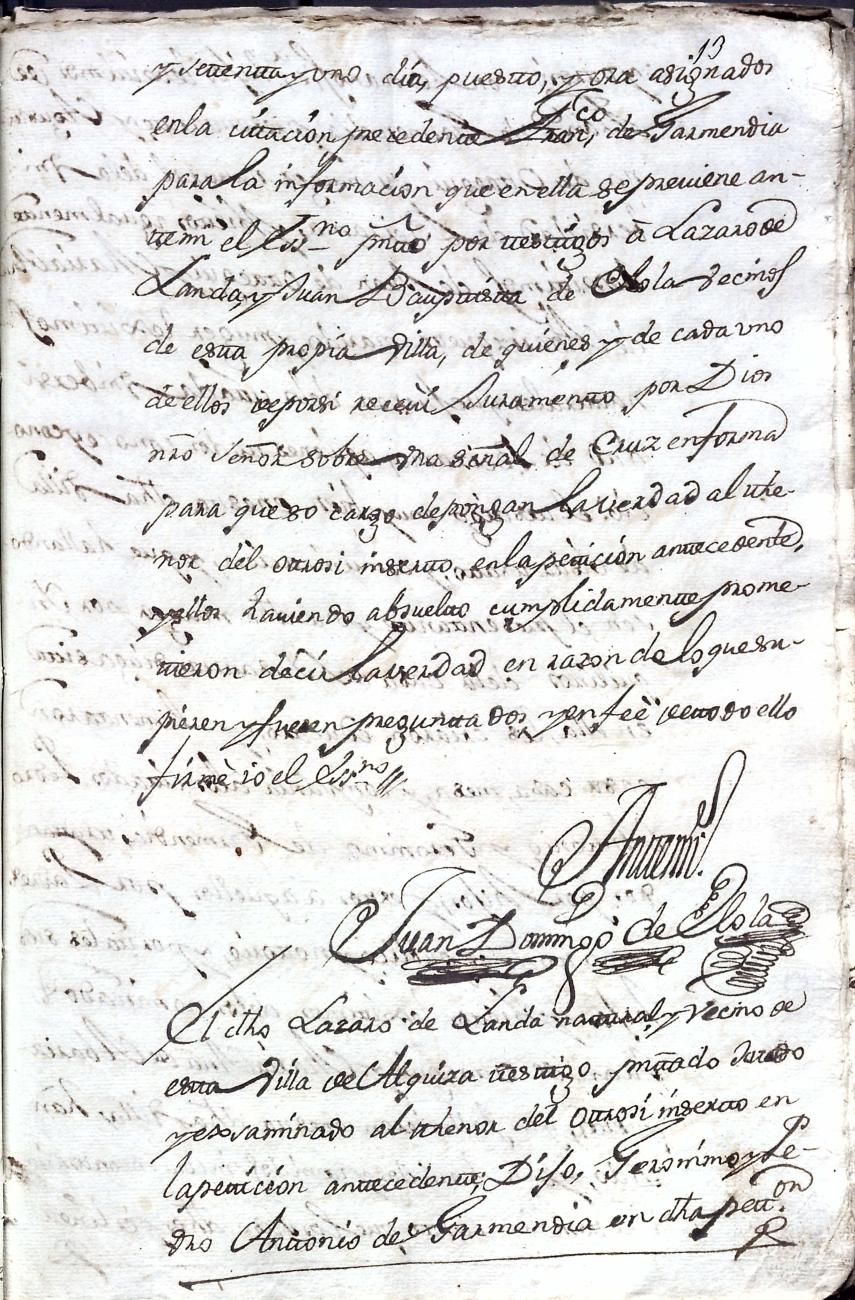 13
y settentta y uno dia, puestto, y ora asignados
en la cittacion precedentte Fran,co de Garmendia
para la informacion que en ella se previene an-
ttemi el Essno pntto por testtigos â Lazaro de
Landa, y Juan Baupttistta de Olola vecinos
de estta propia villa, de quienes y de cada uno
de ellos de por si receví Juramentto por Dios
nro Señor sobre una señal de Cruz en forma
para que so cargo depongan la verdad al the-
nor del ottrosi insertto, en la petticion anttecedentte,
y ellos haviendo absueltto cumplidamentte prome-
ttieron decir la verdad en razon de lo que su-
pieren y fueren preguntados y en feè de ttodo ello
firmè io el Essno
Anttemi.
Juan Domingo de Olola
El dho Lazaro de Landa natural y vecino de
estta Villa de Alquiza testtigo pnttado Jurado
y exsaminado al thenor del Ottrosi insertto en
la petticion anttecedentte; Dijo, Geronimo y Pe-
dro Anttonio de Garmendia en dha petton